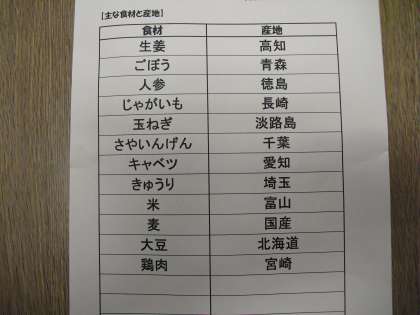 [主な食材と産地]
食材 産地
生姜 高知
ごぼう 青森
人参 徳島
じゃがいも 長崎
玉ねぎ 淡路島
さやいんげん 千葉
キャベツ 愛知
きゅうり 埼玉
米 富山
麦 国産
大豆 北海道
鶏肉 宮崎